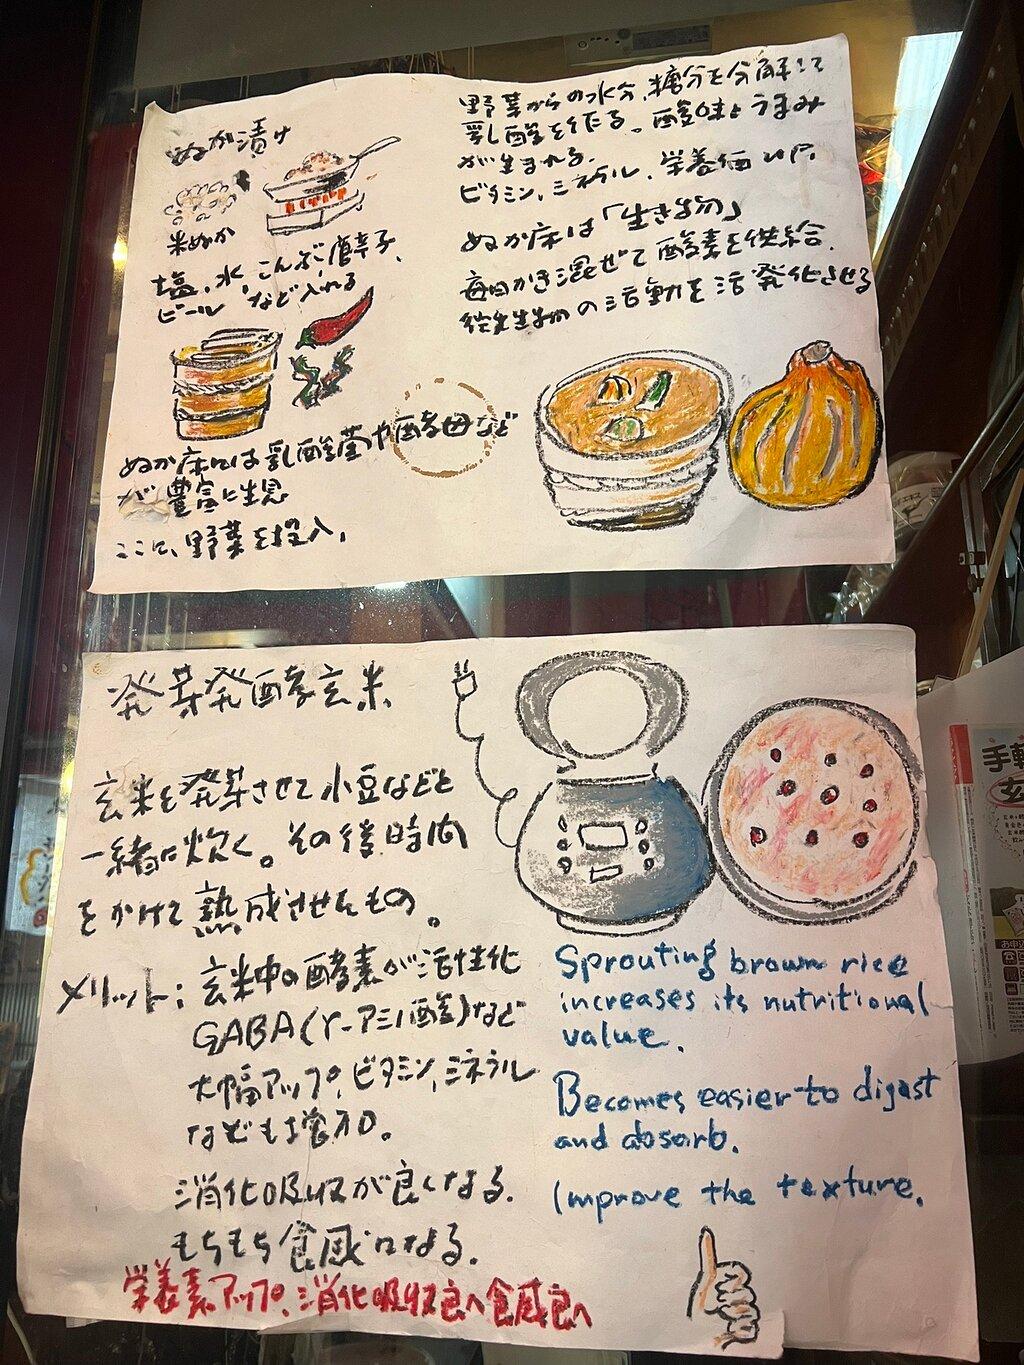 ぬか漬け
米ぬか
塩、水、こんぶ、唐辛子、
ビール などを入れる
ぬか床には乳酸菌や酵母など
が豊富に生息
ここに、野菜を投入。
野菜からの水分、糖分を分解して
乳酸を作る。酸味とうまみ
が生まれる。
ビタミン、ミネラル、栄養価UP。
ぬか床は「生き物」
毎日かき混ぜて酸素を供給。
の活動を活発化させる
発芽発酵玄米
玄米を発芽させて小豆などと
一緒に炊く。その後時間
をかけて熟成させたもの。
メリット:玄米中の酵素が活性化
GABA(γ-アミノ酪酸)など
大幅アップ。ビタミン、ミネラル
なども増加。
消化吸収が良くなる。
もちもち食感になる。
栄養素アップ、消化吸収良へ食感良へ
Sprouting brown rice
increases its nutritional
value.
Becomes easier to digast
and absorb.
Improve the texture.
手軽
玄